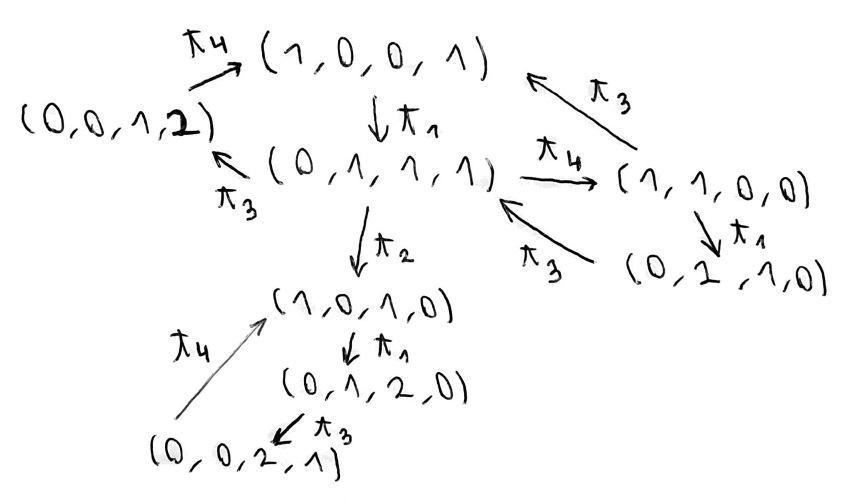 π4 (1,0,0,1)
π3
(0,0,1,2)
π1
(0,1,1,1)
π4
(1,1,0,0)
π3
π1
π3
(0,2,1,0)
π2
(1,0,1,0)
π4
π1
(0,1,2,0)
π3
(0,0,2,1)